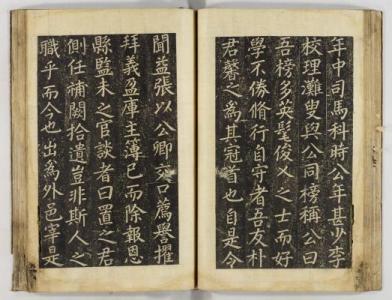 年中司馬科時公年甚少李
校理灘叟與公同榜稱公曰
吾榜多英髦俊乂之士而好
學不倦脩行自守者吾友朴
君馨之爲其冠首也自是令
聞益張以公卿交口薦譽擢
拜義盈庫主簿已而除報恩
縣監未之官諫者曰置之君
側任補闕拾遺豈非斯人之
職乎而今也出爲外邑宰是